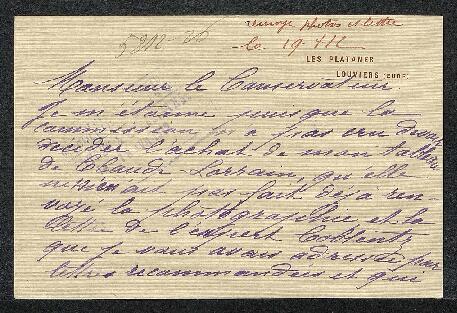 renvoyé photos et lettre
5812-26
le 19-4-22
LES PLATANES
LOUVIERS (EURE)
Monsieur le Conservateur
Je m'étonne puisque la
commission n'a pas cru devoir
décider l'achat de mon tableau
de Claude-Lorrain, qu'elle
m'ait pas fait déjà ren-
voyé la photographie et la
lettre de l'expert
que je vous avais adressée par
lettre recommandée et que